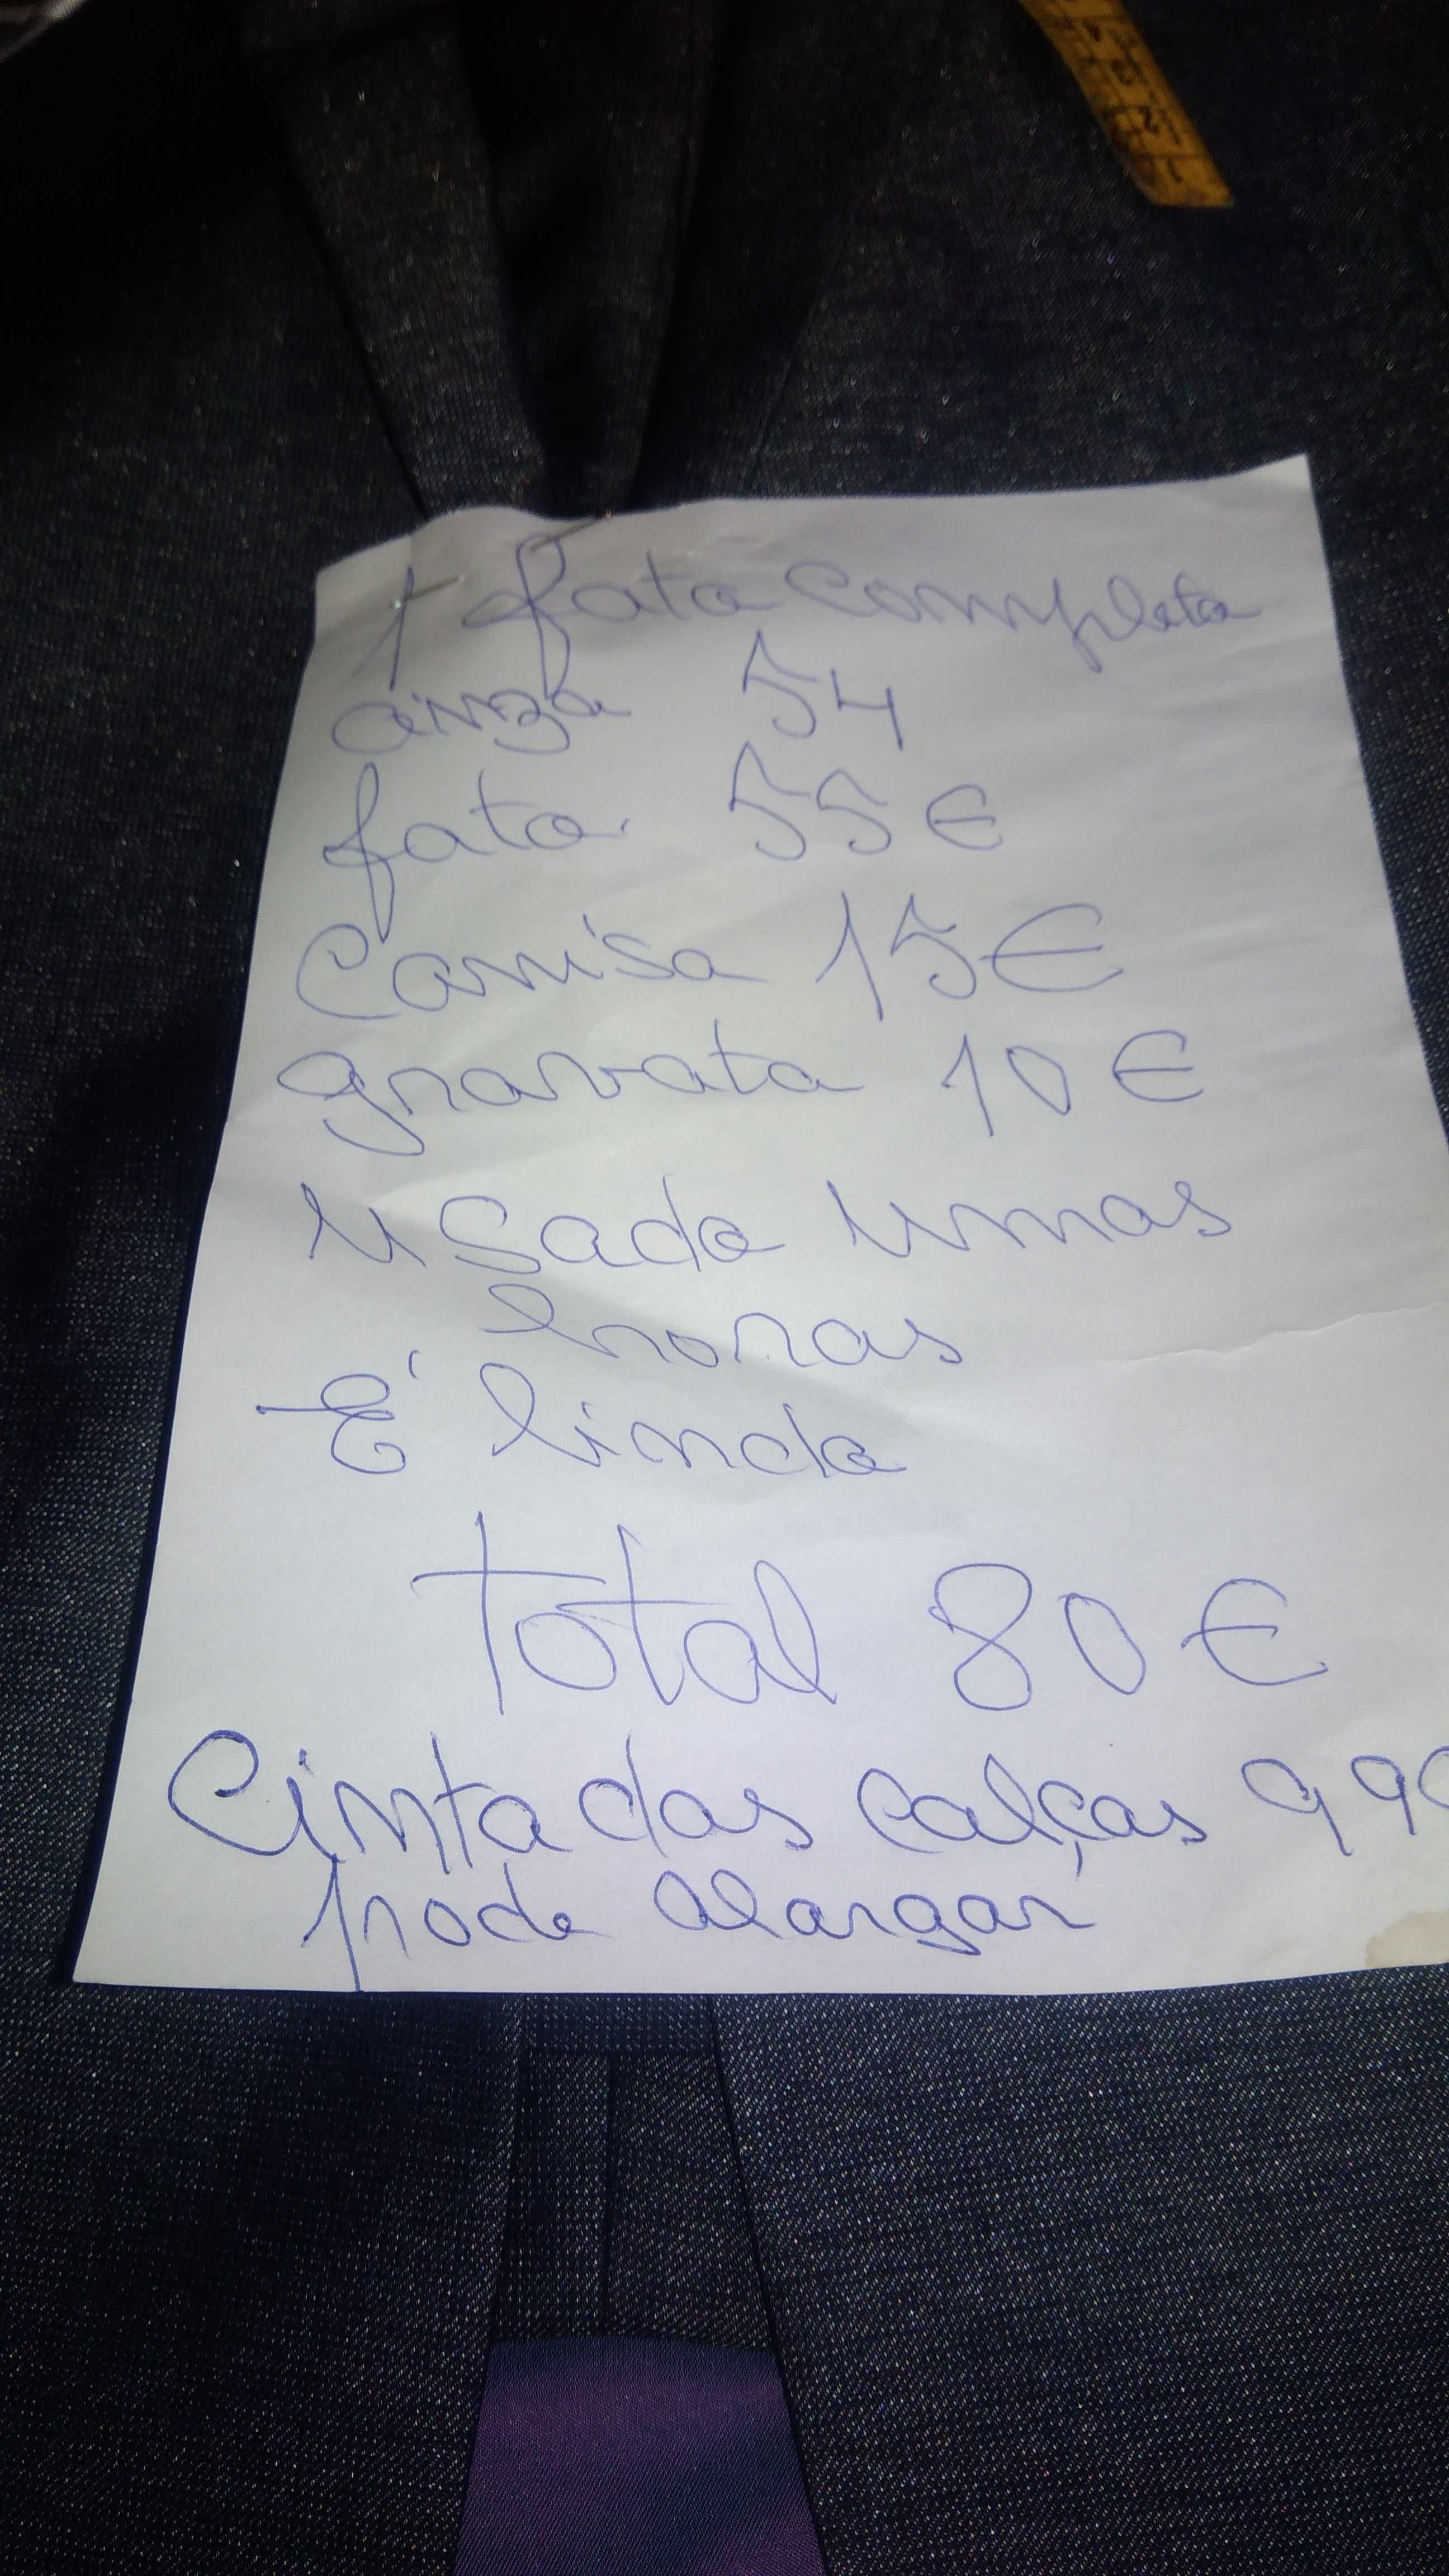 1 fato completo
cinza 54
fato. 55€
Camisa 15€
gravata 10€
Usado umas
horas
É lindo
total 80€
Cinta das calças 99
pode alargar